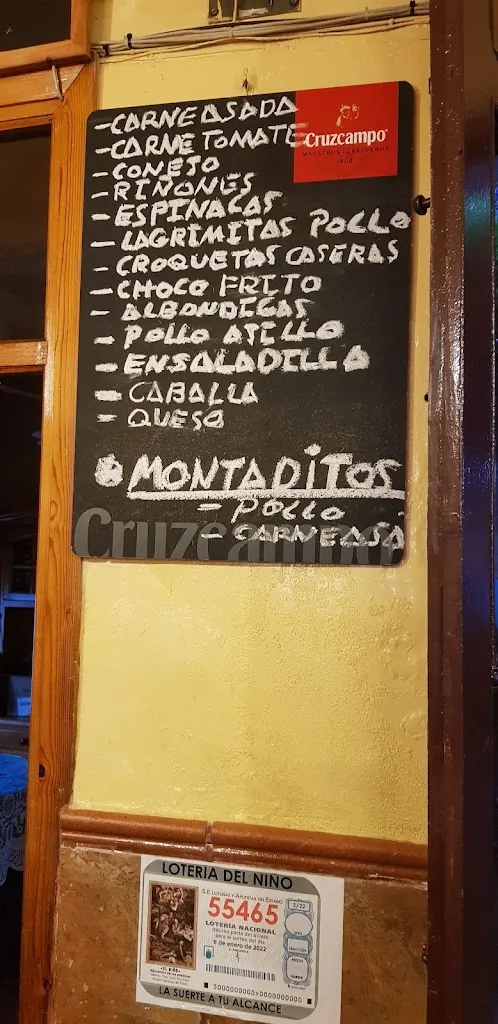 -CARNE ASADA
-CARNE TOMATE
-CONEJO
-RIÑONES
-ESPINACAS
-LAGRIMITAS POLLO
-CROQUETAS CASERAS
-CHOCO FRITO
-ALBONDIGAS
-POLLO AJILLO
-ENSALADILLA
-CABALLA
-QUESO
Cruzcampo
MAESTROS CERVECEROS
1904
MONTADITOS
-POLLO
-CARNE ASA
Cruzcampo
LOTERIA DEL NIÑO
S.E. LOTERÍAS Y APUESTAS DEL ESTADO
55465
2/22
LOTERÍA NACIONAL
Décima parte del billete
para el sorteo del día
6 de enero de 2022
SERIE
FRACCIÓN
PRECIO
LA SUERTE A TU ALCANCE